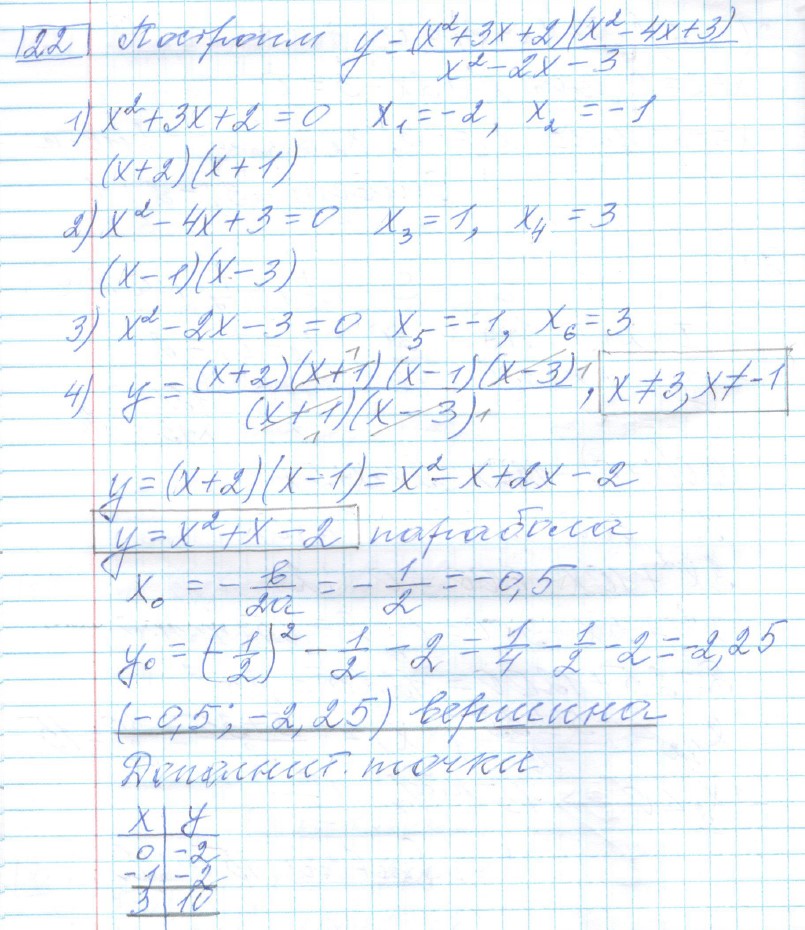 22 Построим y = (x²+3x+2)(x²-4x+3) / x²-2x-3
1) x²+3x+2=0 x₁=-2, x₂=-1
(x+2)(x+1)
2) x²-4x+3=0 x₃=1, x₄=3
(x-1)(x-3)
3) x²-2x-3=0 x₅=-1, x₆=3
4) y = (x+2)(x+1)¹(x-1)(x-3)¹ / (x+1)₁(x-3)₁, x≠3, x≠-1
y=(x+2)(x-1)=x²-x+2x-2
y=x²+x-2 парабола
x₀ = -b/2a = -1/2 = -0,5
y₀ = (-1/2)² - 1/2 - 2 = 1/4 - 1/2 - 2 = -2,25
(-0,5; -2,25) вершина
Дополнит. точки
x y
0 -2
-1 -2
3 10